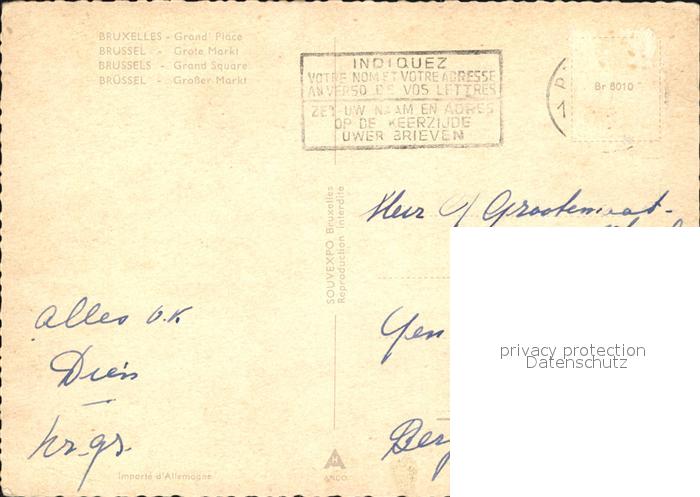 BRUXELLES - Grand' Place
BRUSSEL - Grote Markt
BRUSSELS - Grand Square
BRÜSSEL - Großer Markt
INDIQUEZ
VOTRE NOM ET VOTRE ADRESSE
AU VERSO DE VOS LETTRES
ZET UW NAAM EN ADRES
OP DE KEERZIJDE
UWER BRIEVEN
Br 6010
SOUVEXPO Bruxelles
Reproduction interdite
Alles o.k
Dien
hr.gr.
Heer
privacy protection
Datenschutz
Importé d'Allemagne